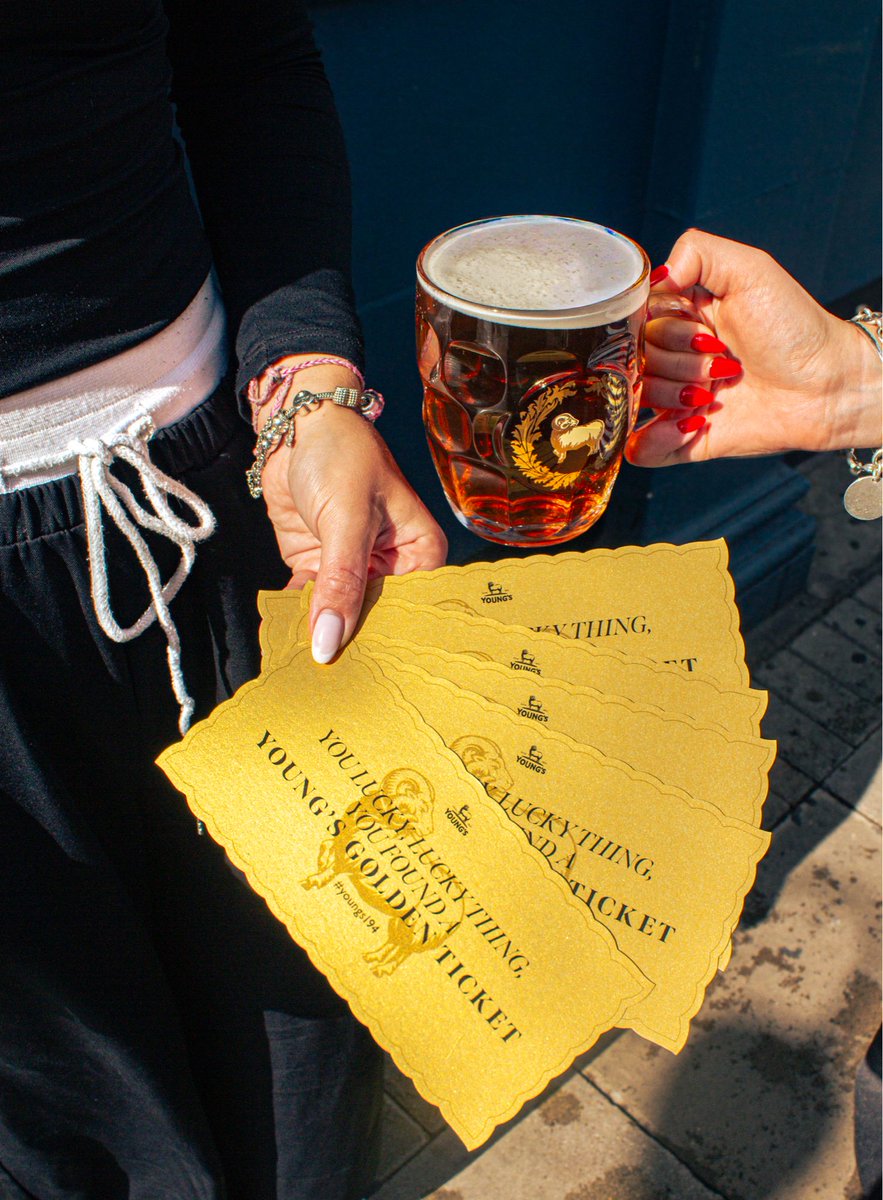 YOUNG'S
CKY THING,
ET
YOUNG'S
YOUNG'S
YOUNG'S
LUCKY THING,
ND A
TICKET
YOUNG'S
YOU LUCKY, LUCKY THING,
YOU FOUND A
YOUNG'S GOLDEN TICKET
#youngs194